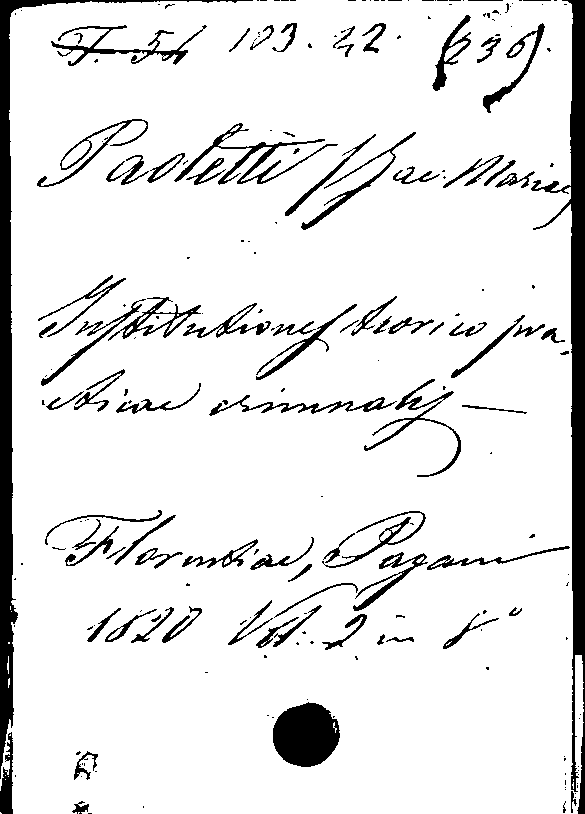 T. 54 103. 22. (236).
Paoletti Jac. Maria
Institutiones teorico pra-
cticae criminalis —
Florentiae, Pagani
1820 Vol. 2 in 8°